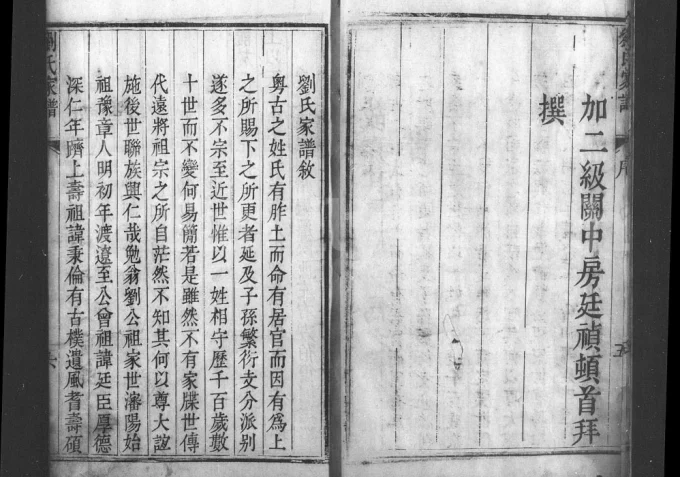 加二級關中房廷禎頓首拜
撰
劉氏家譜敘
粵古之姓氏有胙土而命有居官而因有為上
之所賜下之所更者延及子孫繁衍支分派别
遂多不宗至近世惟以一姓相守歷千百歲數
十世而不變何易簡若是雖然不有家牒世傳
代遠將祖宗之所自茫然不知其何以尊大誼
施後世聯族興仁哉勉翁劉公祖家世瀋陽始
祖豫章人明初年渡遼至公曾祖諱廷臣厚德
深仁年躋上壽祖諱秉倫有古樸遺風耆壽碩
劉氏家譜